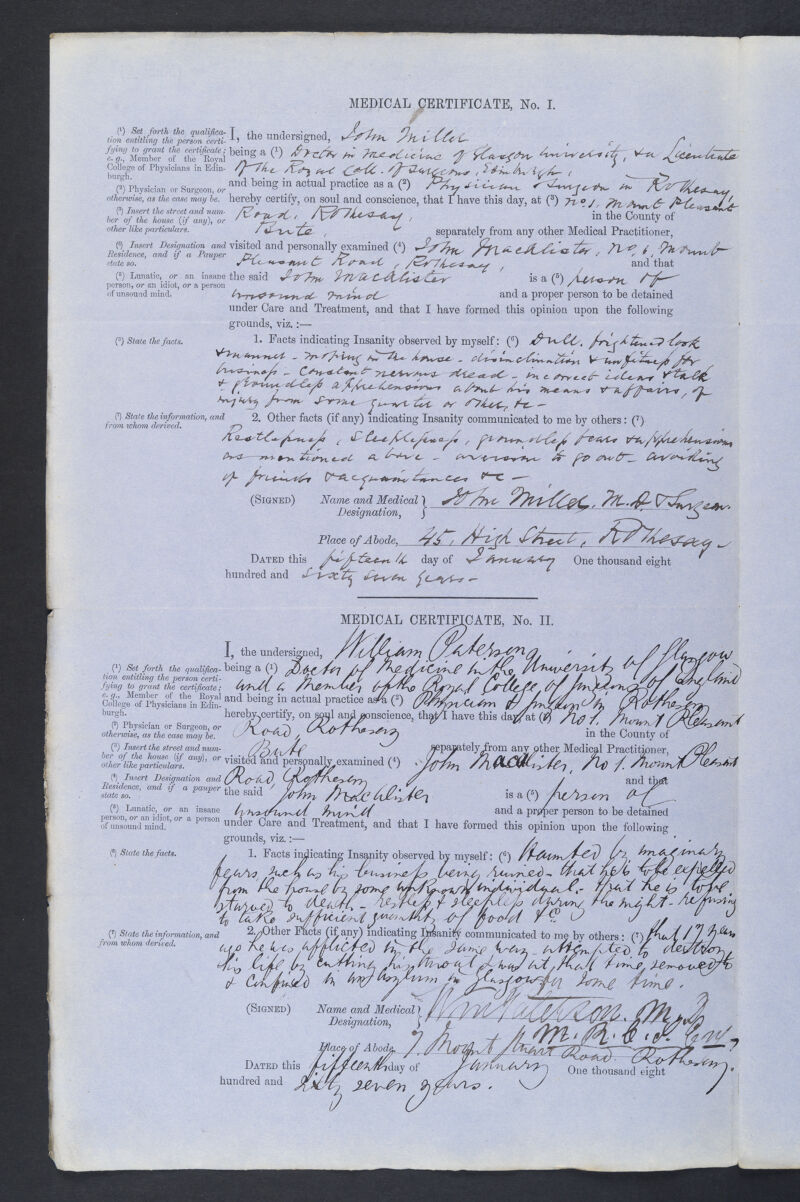 MEDICAL CERTIFICATE, No. I.
(1) Set forth the qualifica-
tion entitling the person certi-
fying to grant the certificate;
e. g., Member of the Royal
College of Physicians in Edin-
burgh.
(2) Physician or Surgeon, or
otherwise, as the case may be.
(3) Insert the street and num-
ber of the house (if any), or
other like particulars.
(4) Insert Designation and
Residence, and if a Pauper
state so.
(5) Lunatic, or an insane
person, or an idiot, or a person
of unsound mind.
I, the undersigned, John Miller
being a (1) Doctor in medicine of Glasgow University, & a Licentiate
of the Royal Coll. of Surgeons, Edinburgh,
and being in actual practice as a (2) Physician & Surgeon in Rothesay,
hereby certify, on soul and conscience, that I have this day, at (3) No. 1. Mount Pleasant
Road, Rothesay, in the County of
Bute, separately from any other Medical Practitioner,
visited and personally examined (4) John Macalister, No, 1, Mount
Pleasant Road, Rothesay, and that
the said John Macalister is a (5) person of
unsound mind and a proper person to be detained
under Care and Treatment, and that I have formed this opinion upon the following
grounds, viz. :—
(6) State the facts.
1. Facts indicating Insanity observed by myself: (6) Dull. frightened look
& manner - moping in the house - disinclination & unfitness for
business - constant nervous dread - incorrect ideas & talk
& groundless apprehensions about his means & affairs, of
injury from some quarter or other, &c -
(7) State the information, and
from whom derived.
2. Other facts (if any) indicating Insanity communicated to me by others: (7)
Restlessness, sleeplessness, groundless fears & apprehensions
as mentioned above - aversion to go out - avoiding
of friends & acquaintances &c -
(SIGNED) Name and Medical Designation, John Miller. M.D. & Surgeon.
Place of Abode, 45, High Street, Rothesay -
DATED this fifteenth day of January One thousand eight
hundred and sixty seven years -
MEDICAL CERTIFICATE, No. II.
(1) Set forth the qualifica-
tion entitling the person certi-
fying to grant the certificate;
e. g., Member of the Royal
College of Physicians in Edin-
burgh.
(2) Physician or Surgeon, or
otherwise, as the case may be.
(3) Insert the street and num-
ber of the house (if any), or
other like particulars.
(4) Insert Designation and
Residence, and if a pauper
state so.
(5) Lunatic, or an insane
person, or an idiot, or a person
of unsound mind.
I, the undersigned, William Paterson
being a (1) Doctor of Medicine in the University of Glasgow
and a Member of the Royal College of Surgeons of England
and being in actual practice as a (2) Physician & Surgeon in Rothesay
hereby certify, on soul and conscience, that I have this day, at (3) No 1. Mount Pleasant
Road, Rothesay in the County of
Bute separately from any other Medical Practitioner,
visited and personally examined (4) John Macalister, No 1. Mount Pleasant
Road, Rothesay and that
the said John Macalister is a (5) person of
unsound mind and a proper person to be detained
under Care and Treatment, and that I have formed this opinion upon the following
grounds, viz. :—
(6) State the facts.
1. Facts indicating Insanity observed by myself: (6) Haunted by imaginary
fears, such as his business being ruined - that he is to be expelled
from the house by some unknown individual - that he is to be
starved to death - restless & sleepless during the night - refusing
to take sufficient quantity of food &c.
(7) State the information, and
from whom derived.
2. Other Facts (if any) indicating Insanity communicated to me by others: (7) that 17 years
ago he was afflicted in the same way - attempted to destroy
his life by cutting his throat & was at that time, removed to
& confined in an asylum in Glasgow for some time.
(SIGNED) Name and Medical Designation, Wm Paterson. M.D.
M.R.C.S. Eng.
Place of Abode, 7 Mount Stuart Road. Rothesay.
DATED this fifteenth day of January One thousand eight
hundred and sixty seven years.